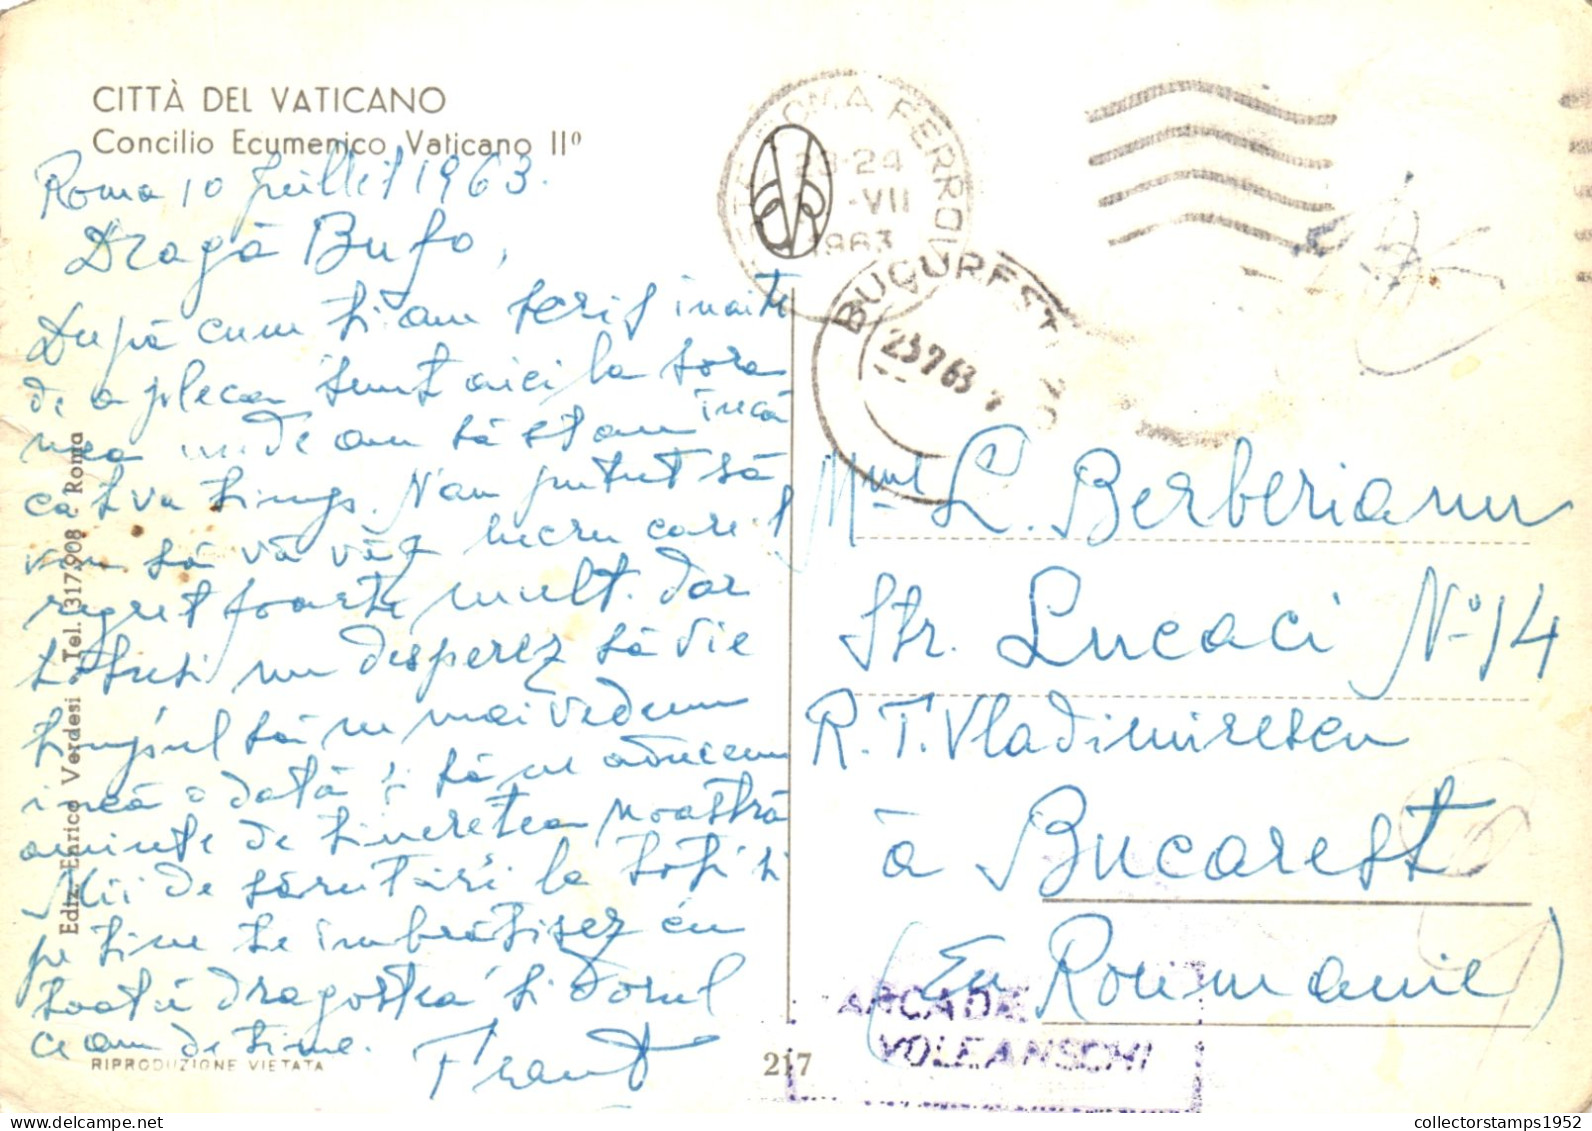 CITTÀ DEL VATICANO
Concilio Ecumenico Vaticano IIº
Roma 10 Juillet 1963.
Dragă Bufo,
După cum ți-am scris înainte
de a pleca sunt aici la sora
mea unde am să stau încă
câtva timp. N'am putut să
vin să vă văz lucru care îl
regret foarte mult. Dar
totuși nu desperez să vie
timpul să ne mai vedem
încă o dată și să ne aducem
aminte de tinerețea noastră
Mii de sărutări la toți și
pe tine te îmbrățișez cu
toată dragostea și dorul
ce am de tine.
RIPRODUZIONE VIETATA
Ediz. Enrico Verdesi - Tel. 317.908 - Roma
217
ROMA FERROVIA
23-24
-VII
1963
BUCUREȘTI
23 7 63
Mme L. Berberianu
Str. Lucaci Nº 14
R. T. Vladimirescu
à Bucarest
(En Roumanie)
ARCADIE
VOLEANSCHI
collectorstamps1952